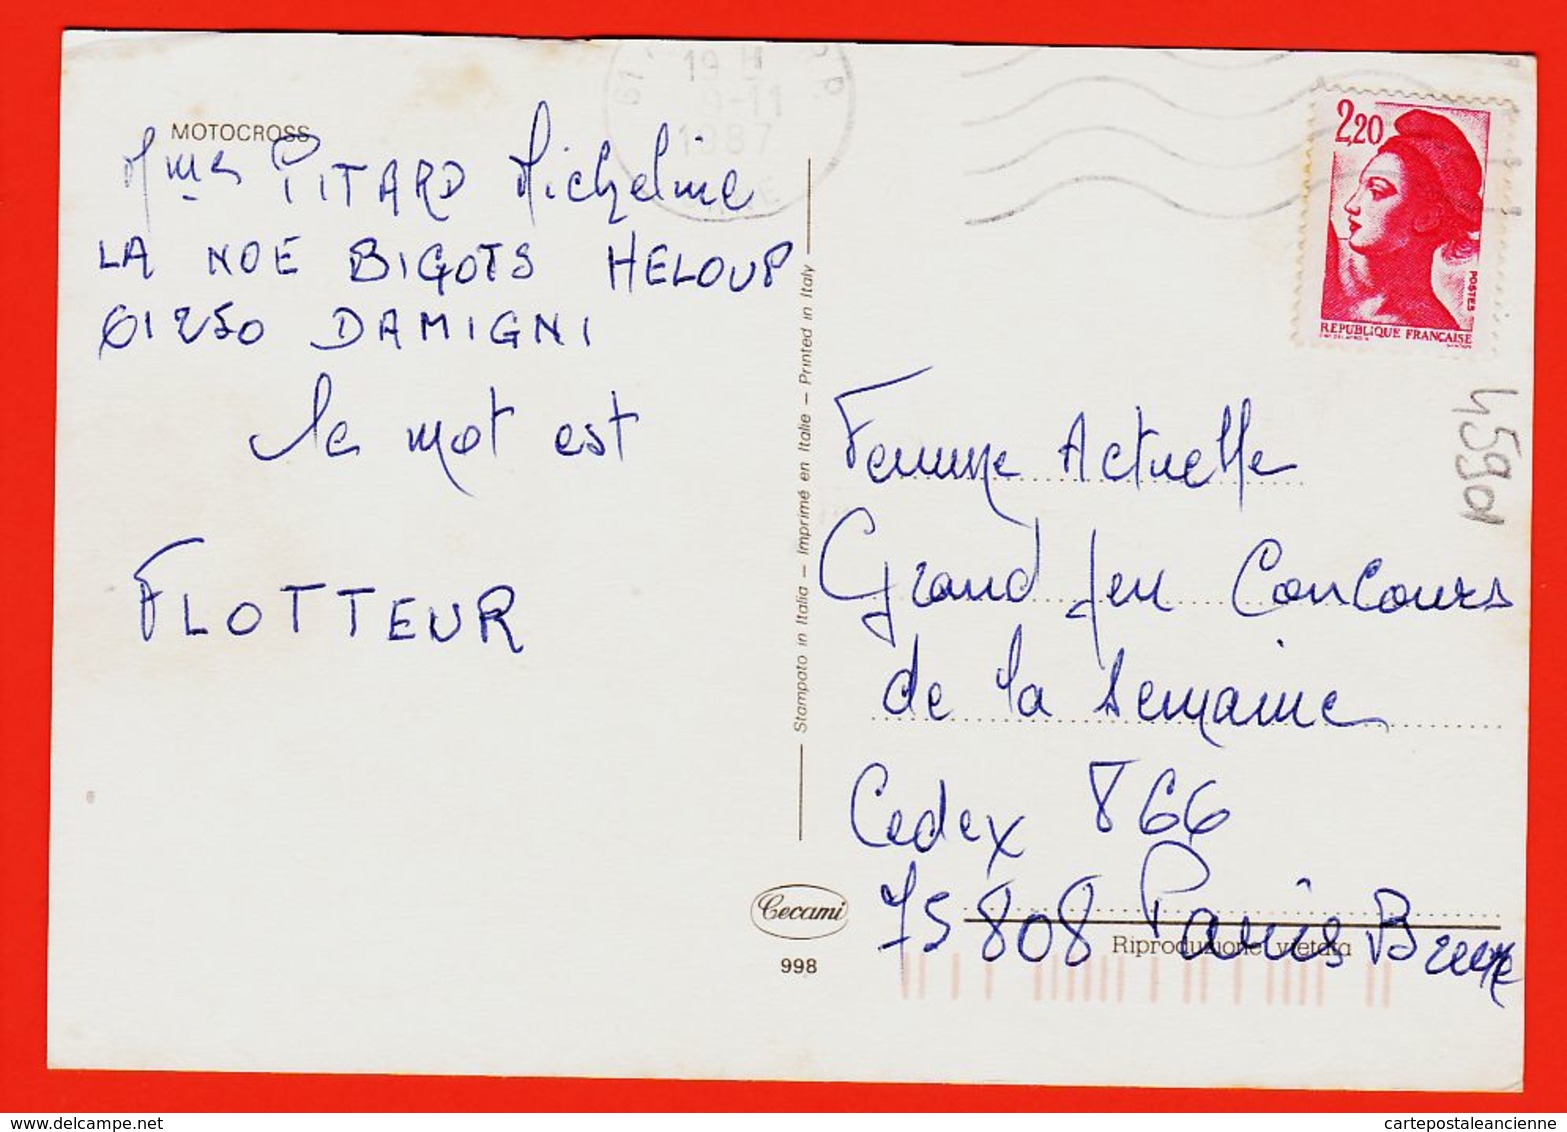 MOTOCROSS
Mme PITARD Micheline
LA NOE BIGOTS HELOUP
61250 DAMIGNI
le mot est
FLOTTEUR
19 H
-11
1987
Stampato in Italia – Imprimé en Italie – Printed in Italy
Cecami
998
2,20
POSTES
REPUBLIQUE FRANÇAISE
4590
Femme Actuelle
Grand Jeu Concours
de la Semaine
Cedex 866
75808 Paris Brune
Riproduzione vietata
cartepostaleancienne